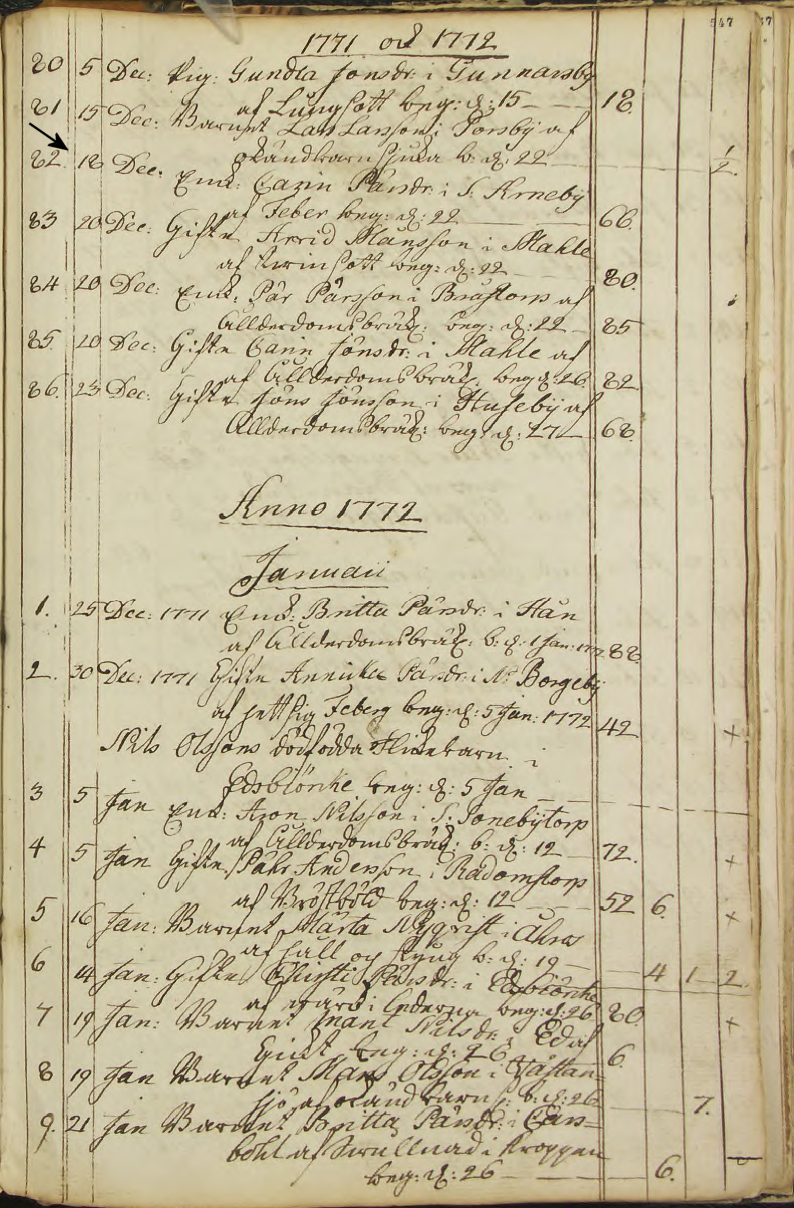 1771 och 1772
547 37
80 5 Dec: Pig: Gundla Jonsdr: i Gunnarsby
af Lungsott beg: d: 15 18.
81 15 Dec: Barnet Lars Larsson i Torsby af
okänd barnsjuka b: d: 22 1/2.
82. 18 Dec: Enk: Carin Pärsdr: i S. Arneby
af Feber beg: d: 22 66.
83 20 Dec: Gifte Arvid Månsson i Mahle
af Twinsott beg: d: 22 80.
84 20 Dec: Enk: Pär Pärsson i Bråstorp af
Ållderdomsbräk: beg: d: 22 85
85. 20 Dec: Gifte Carin Jönsdr: i Mahle af
af Ållderdomsbräk: beg d: 26 82
86. 23 Dec: Gifte Jöns Jönsson i Huseby af
Ållderdomsbräk: beg: d: 27 68.
Anno 1772
Januarii
1. 25 Dec: 1771 Enk: Britta Pärsdr: i Hån
af Ållderdomsbräk: b: d: 1 Jan: 1772 88.
2. 30 Dec: 1771 Gifte Annicka Pärsdr: i N: Borgeby
af hettsig Feber beg: d: 5 Jan: 1772 42
Nils Olssons dödfödda Flickebarn i +
Edsbiörcke beg: d: 5 Jan
3 5 Jan Enk: Aron Nilsson i S. Sonebytorp
af Ållderdomsbräk: b: d: 12 72.
4 5 Jan Gifte Påhr Andersson i Radomstorp +
af Bröstböld beg: d: 12 52 6.
5 16 Jan: Barnet Märta Nygrift i Åhras +
af hall og styng b: d: 19 4 1 2
6 14 Jan: Gifte Christi Pärsdr: i Edsbiörcke
af wärck i Lederna beg: d: 26 80.
7 19 Jan: Barnet Marit Nilsdr: i Ed af +
Gickt beg: d: 26 6.
8 19 Jan Barnet Måns Olsson i
sjö af okänd barns: b: d: 26 7.
9. 21 Jan Barnet Britta Pärsdr: i
böhl af Swullnad i Kroppen
beg: d: 26 6.